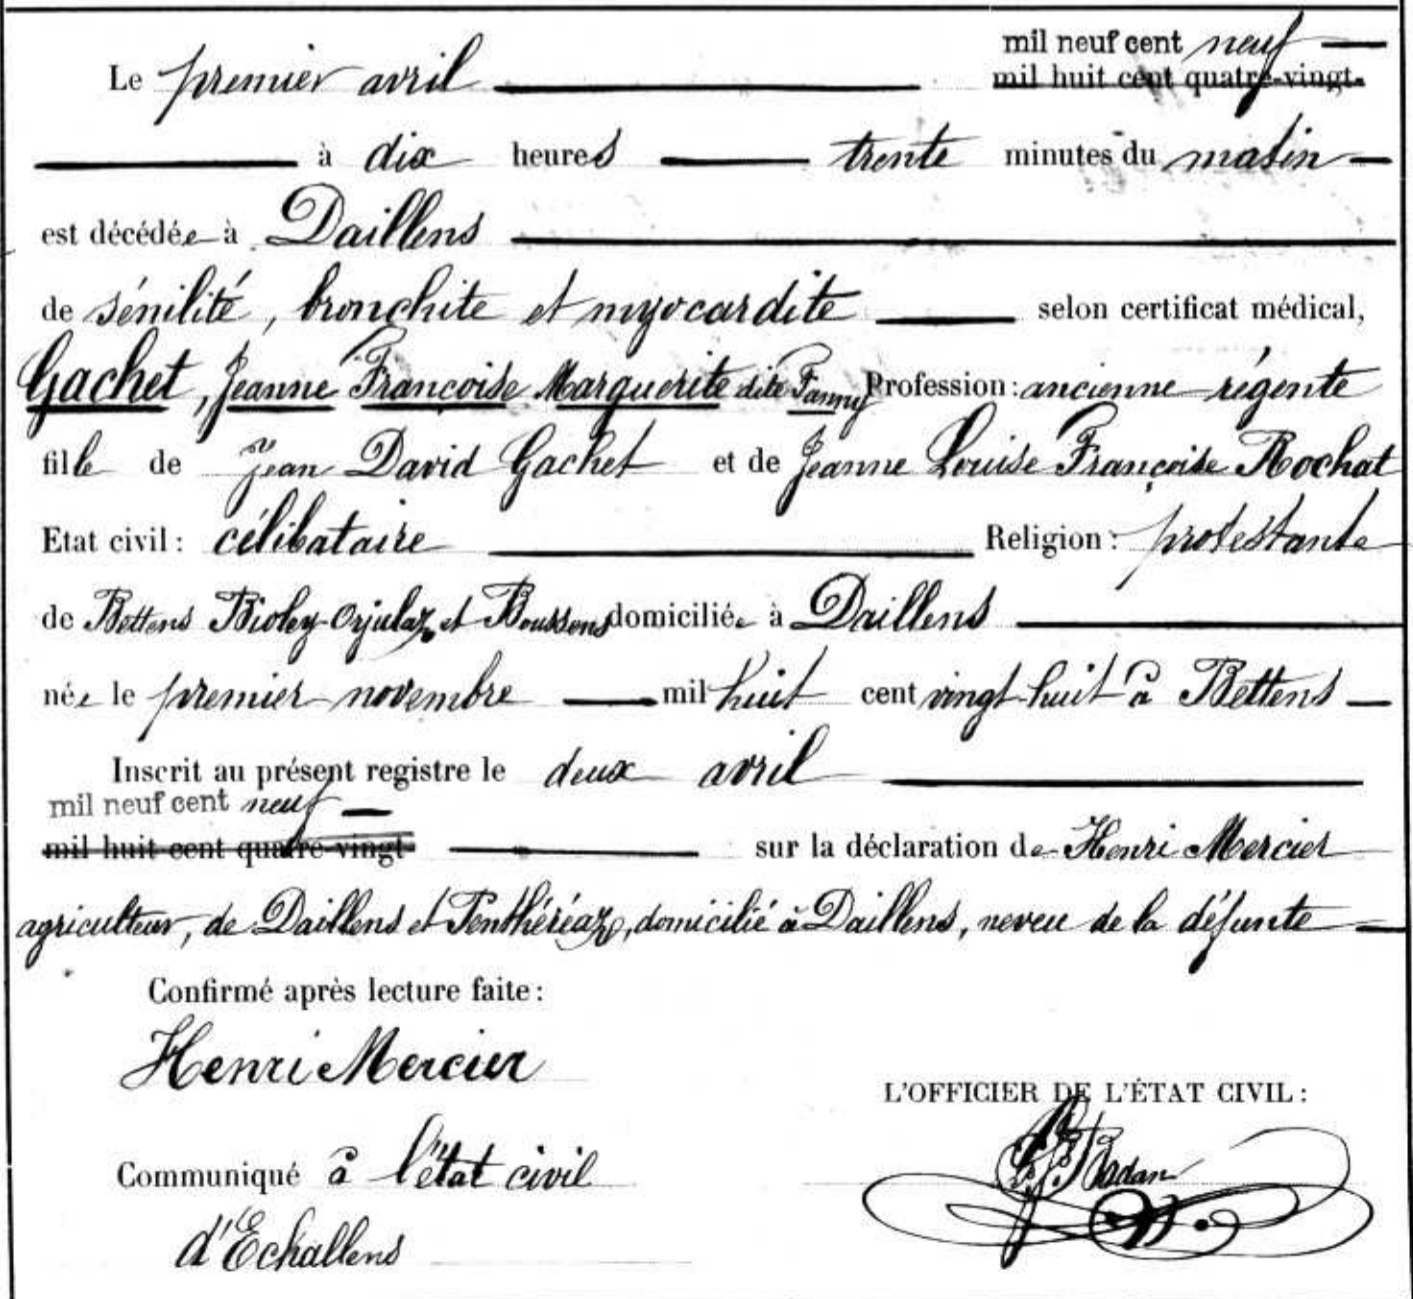 mil neuf cent neuf
Le premier avril mil huit cent quatre-vingt-
à dix heures trente minutes du matin
est décédée à Daillens
de sénilité, bronchite et myocardite selon certificat médical,
Gachet, Jeanne Françoise Marguerite dite Fanny Profession: ancienne régente
fille de Jean David Gachet et de Jeanne Louise Françoise Rochat
Etat civil: célibataire Religion: protestante
de Bettens Bioley-Orjulaz et Boussens domiciliée à Daillens
née le premier novembre mil huit cent vingt huit à Bettens
Inscrit au présent registre le deux avril
mil neuf cent neuf
mil huit cent quatre-vingt- sur la déclaration de Henri Mercier
agriculteur, de Daillens et Penthéréaz, domicilié à Daillens, neveu de la défunte
Confirmé après lecture faite:
Henri Mercier
L'OFFICIER DE L'ÉTAT CIVIL:
Badan
Communiqué à l'état civil
d'Echallens